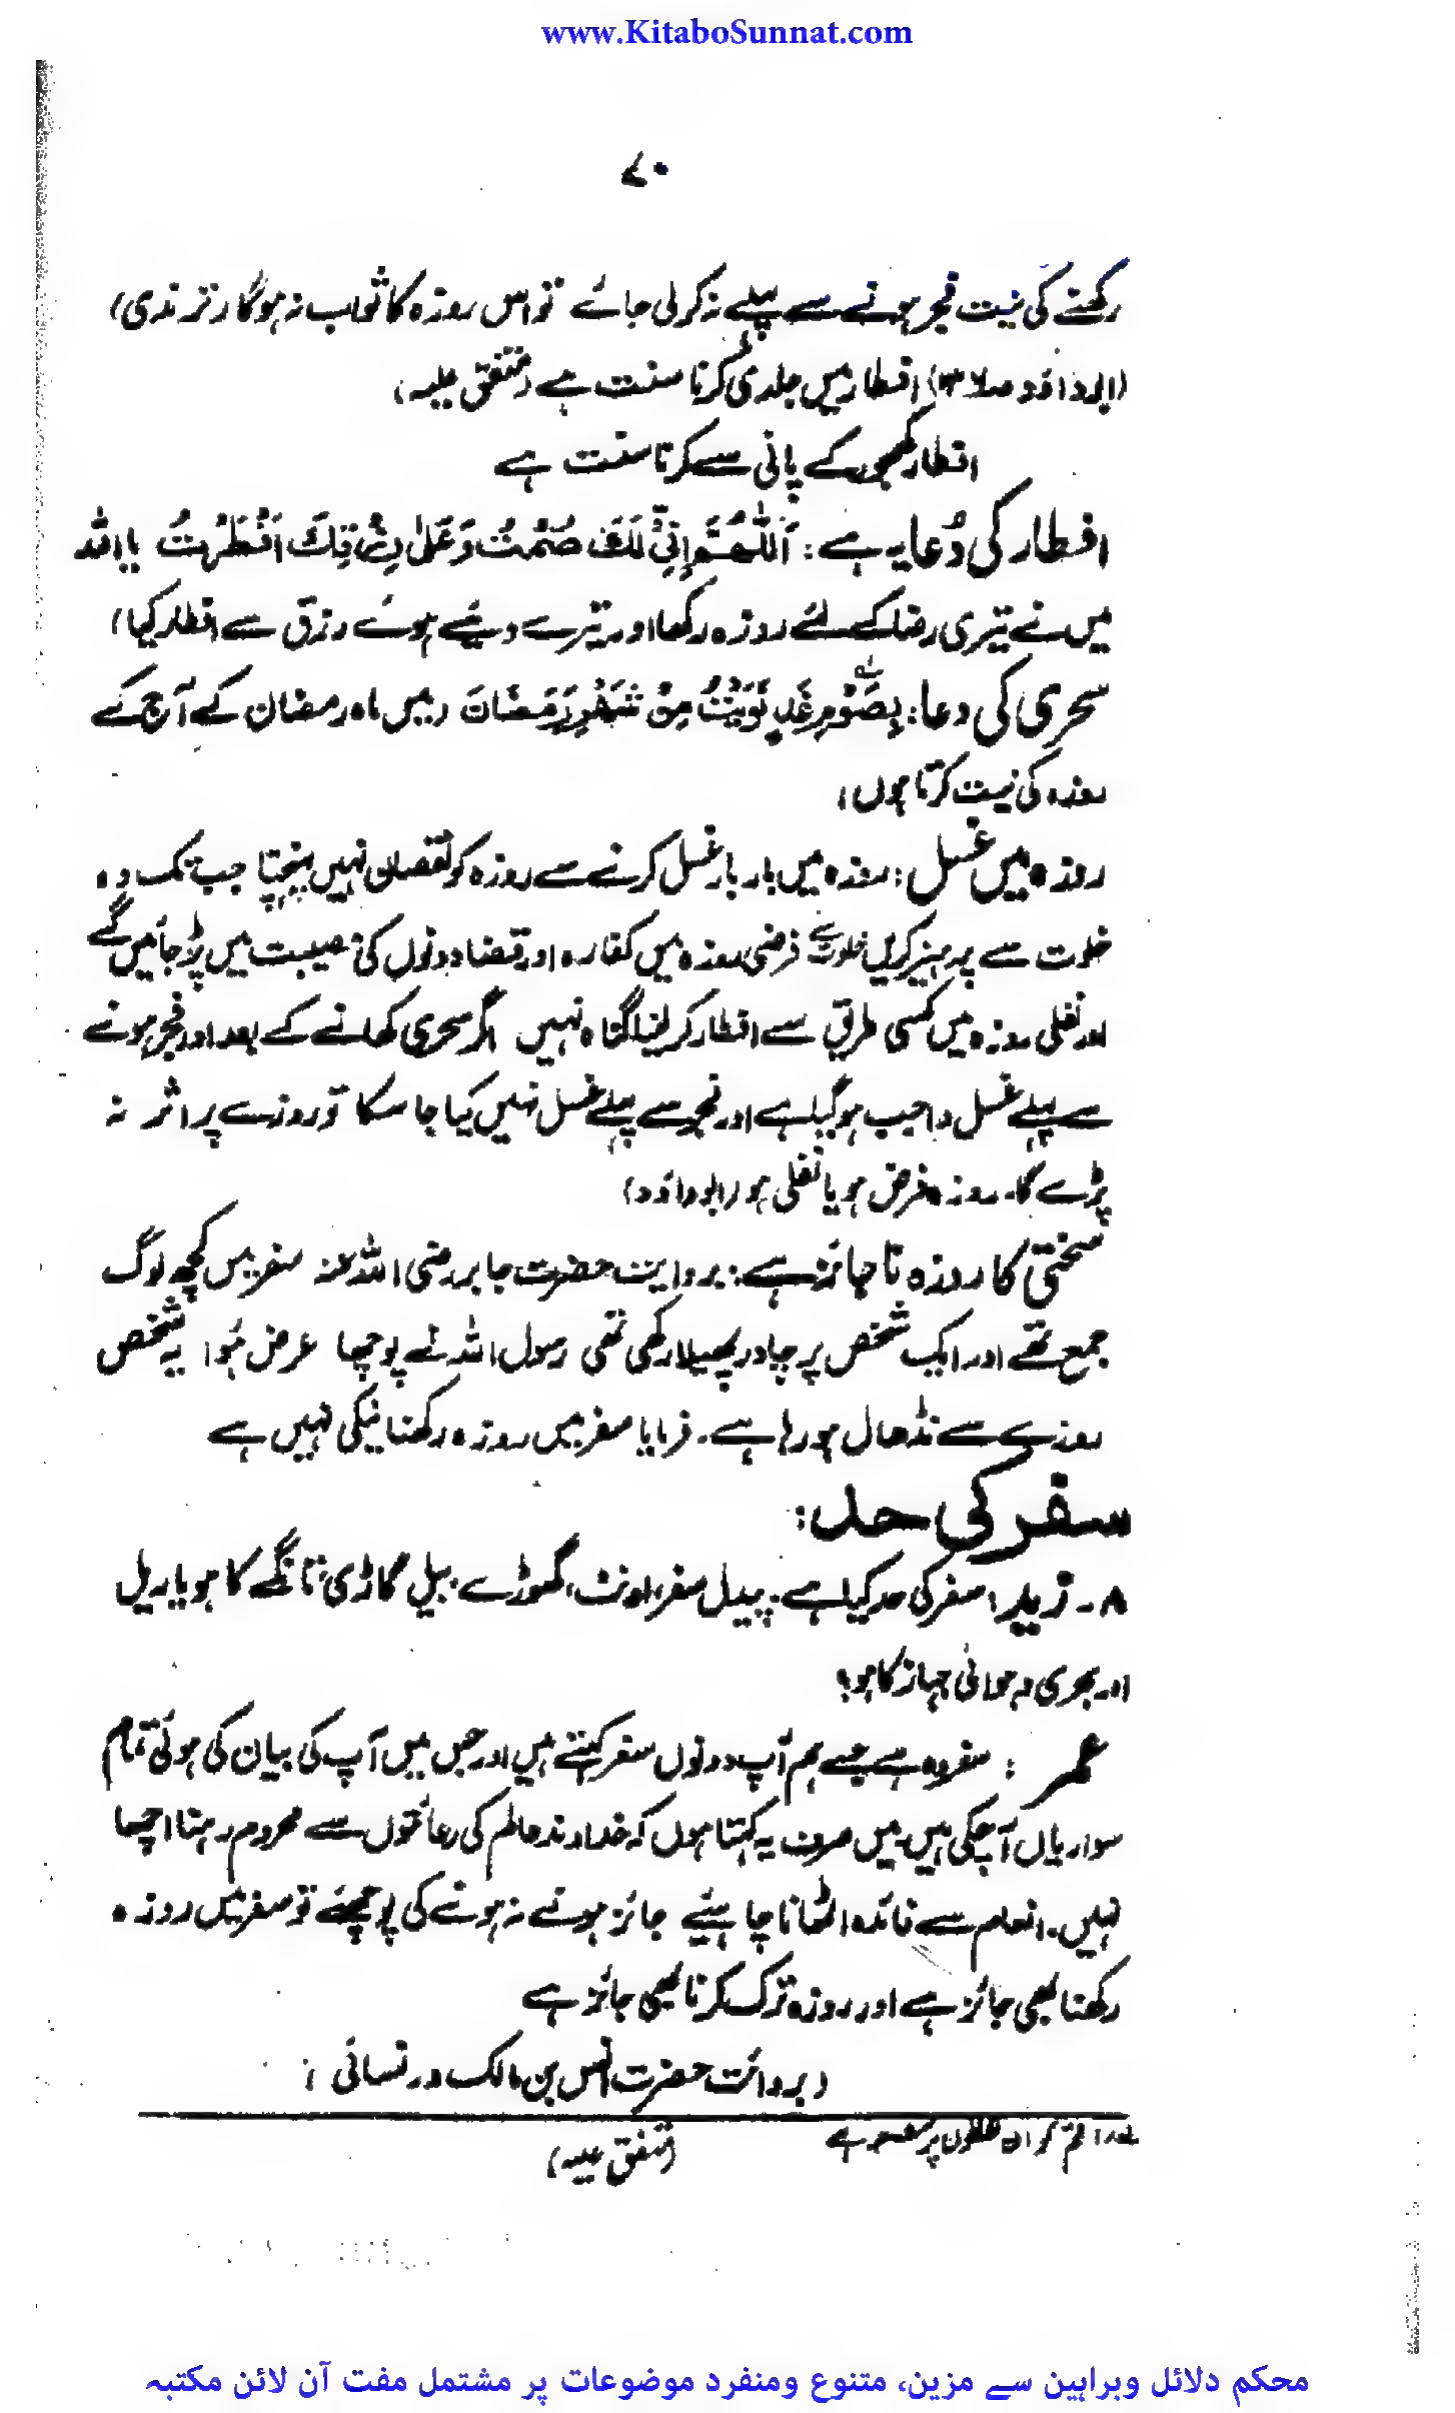 www.KitaboSunnat.com
۷۰
رکھنے کی نیت فجر ہونے سے پہلے نہ کر لی جائے تو اس روزہ کا ثواب نہ ہوگا (ترمذی)
(ابوداؤد) افطار میں جلدی کرنا سنت ہے (متفق علیہ)
افطار کھجور کے پانی سے کرنا سنت ہے
افطار کی دُعا یہ ہے: اَللّٰھُمَّ اِنِّیْ لَکَ صُمْتُ وَعَلٰی رِزْقِکَ اَفْطَرْتُ یا اللہ
میں نے تیری رضا کے لئے روزہ رکھا اور تیرے دیئے ہوئے رزق سے افطار کیا)
سحری کی دعا: بِصَوْمِ غَدٍ نَوَیْتُ مِنْ شَھْرِ رَمَضَانَ (میں ماہ رمضان کے آج کے
روزہ کی نیت کرتا ہوں)
روزہ میں غسل: روزہ میں بار بار غسل کرنے سے روزہ کو نقصان نہیں پہنچتا جب تک وہ
خلوت سے پرہیز کریں خلوت سے فرضی روزہ میں کفارہ اور قضا دونوں کی مصیبت میں پڑ جائیں گے
اور نفلی روزہ میں کسی طریق سے افطار کر لینا گناہ نہیں اگر سحری کھانے کے بعد اور فجر ہونے
سے پہلے غسل واجب ہو گیا ہے اور فجر سے پہلے غسل نہیں کیا جا سکا تو روزے پر اثر نہ
پڑے گا۔ روزہ فرض ہو یا نفلی ہو (ابوداؤد)
سختی کا روزہ ناجائز ہے: بروایت حضرت جابر رضی اللہ عنہ سفر میں کچھ لوگ
جمع تھے اور ایک شخص پر چادر پھیلا رکھی تھی رسول اللہ نے پوچھا عرض ہُوا یہ شخص
روزے سے نڈھال ہو رہا ہے۔ فرمایا سفر میں روزہ رکھنا نیکی نہیں ہے
سفر کی حد:
۸۔ زید: سفر کی حد کیا ہے۔ پیدل سفر، اونٹ، گھوڑے، بیل گاڑی، تانگے کا ہو یا ریل
اور بحری و ہوائی جہاز کا ہو؟
عمر : سفر وہ ہے جسے ہم آپ دونوں سفر کہتے ہیں اور جس میں آپ کی بیان کی ہوئی تمام
سواریاں آ چکی ہیں، میں صرف یہ کہتا ہوں کہ خداوند عالم کی رعائتوں سے محروم رہنا اچھا
نہیں۔ انعام سے فائدہ اٹھانا چاہئیے جائز ہونے نہ ہونے کی پوچھئے تو سفر میں روزہ
رکھنا بھی جائز ہے اور روزہ ترک کرنا بھی جائز ہے
(بروائت حضرت انس بن مالک و نسائی)
(متفق علیہ)
محکم دلائل وبراہین سے مزین، متنوع ومنفرد موضوعات پر مشتمل مفت آن لائن مکتبہ